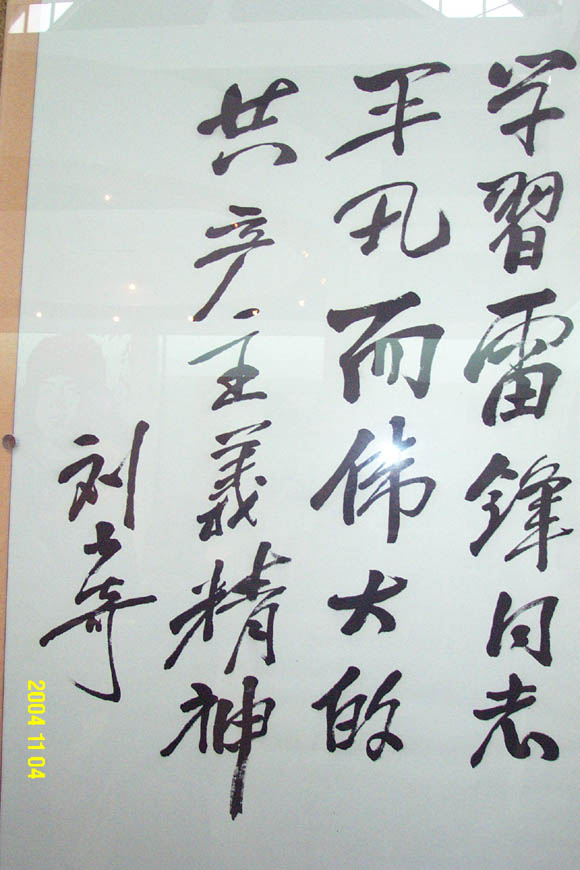 学習雷锋同志
平凡而伟大的
共产主義精神
刘少奇
2004 11 04